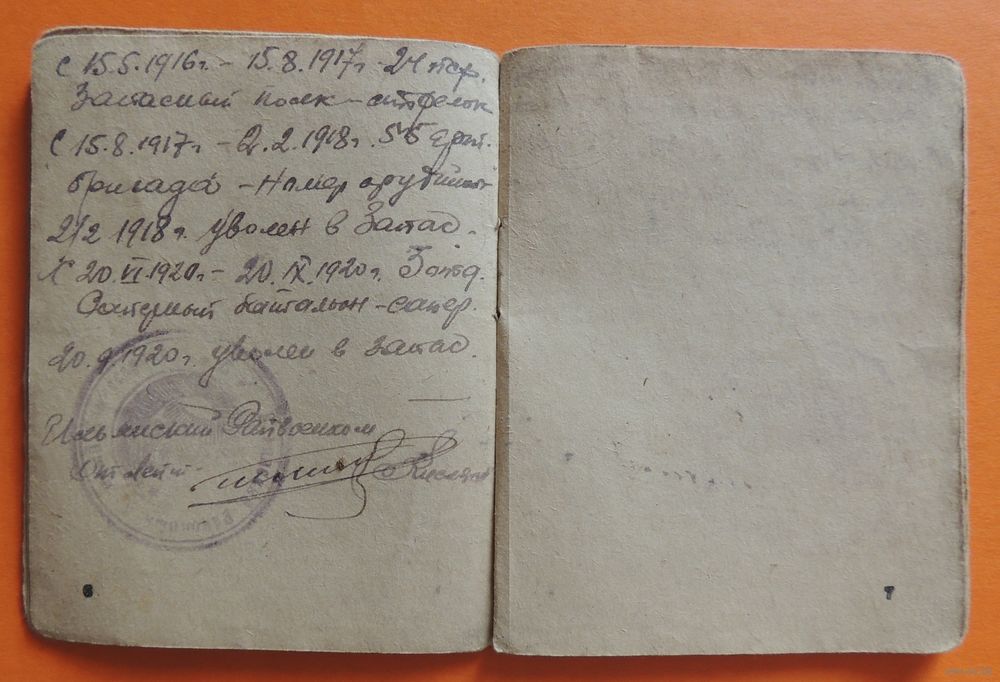 С 15.5.1916г. - 15.8.1917г - 24
Запасный полк - стрелок
С 15.8.1917г - 2.2.1918г.
бригада - Номер орудийный
2/2 1918г. уволен в Запас.
С 20.VI.1920г. - 20.IX.1920г. Запа.
Саперный баттальон - сапер.
20.9.1920г. уволен в запас.
Райвоенком
6
7